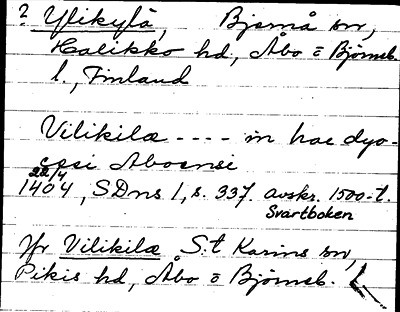 ? Ylikylä, Bjärnå sn,
Halikko hd, Åbo o Björneb.
l., Finland
Vilikilæ ---- in hac dyo-
cesi Aboensi
22/4
1404, SDns 1, s. 337. avskr. 1500-t.
Svartboken
Jfr Vilikilæ S:t Karins sn,
Pikis hd, Åbo o Björneb. l.